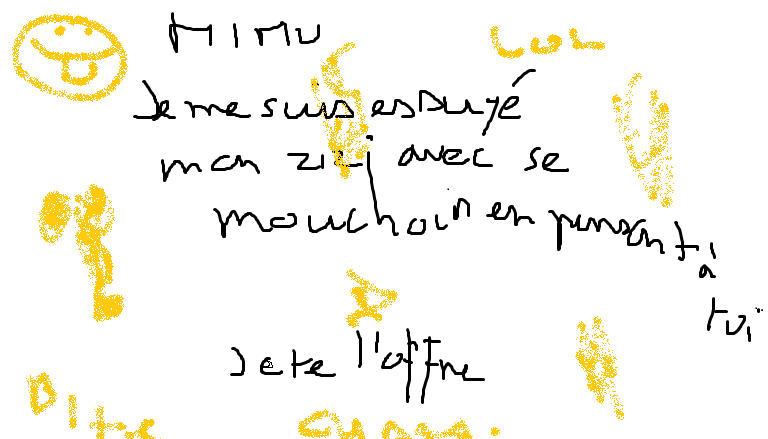 MIMU LOL
Je me suis essuyé
mon zizi avec se
mouchoir en pensant à
toi
Je te l'offre